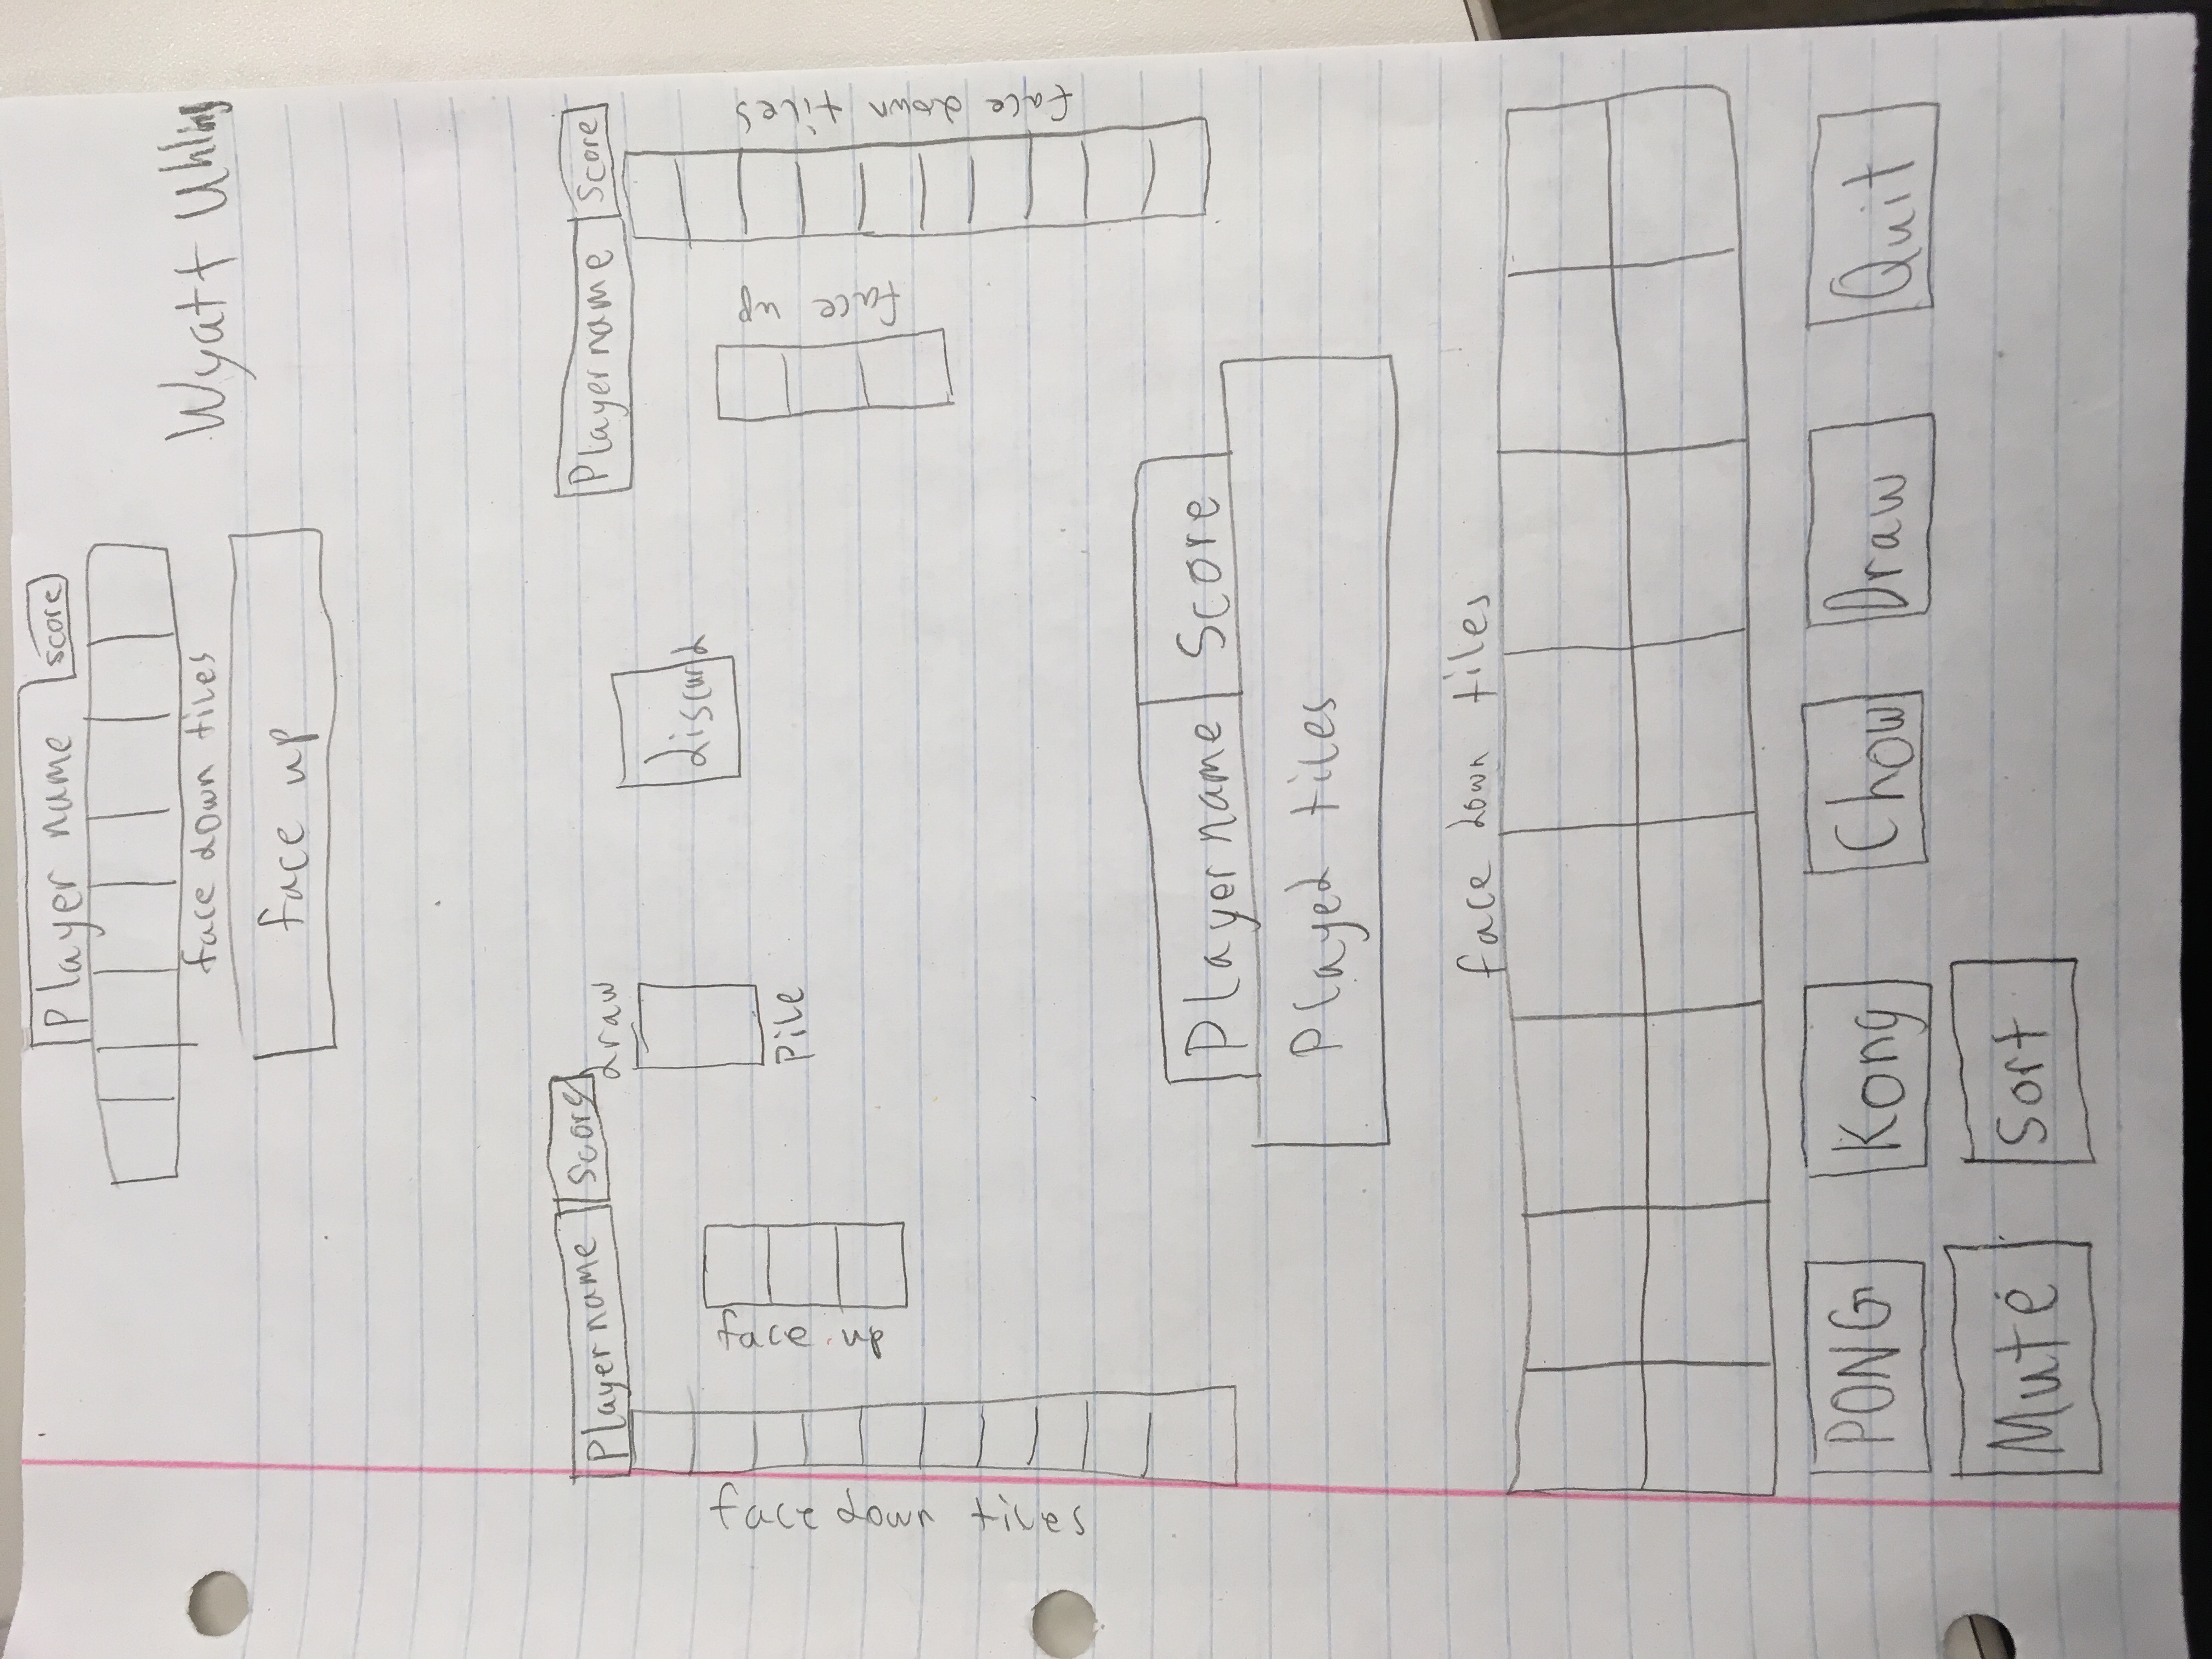 Player name score
face down tiles
Wyatt
face up
Player name Score
draw
Pile
discard
Player name Score
face down tiles
face up
face up
face down tiles
Player name Score
Played tiles
face down tiles
PONG Kong Chow Draw Quit
Mute Sort